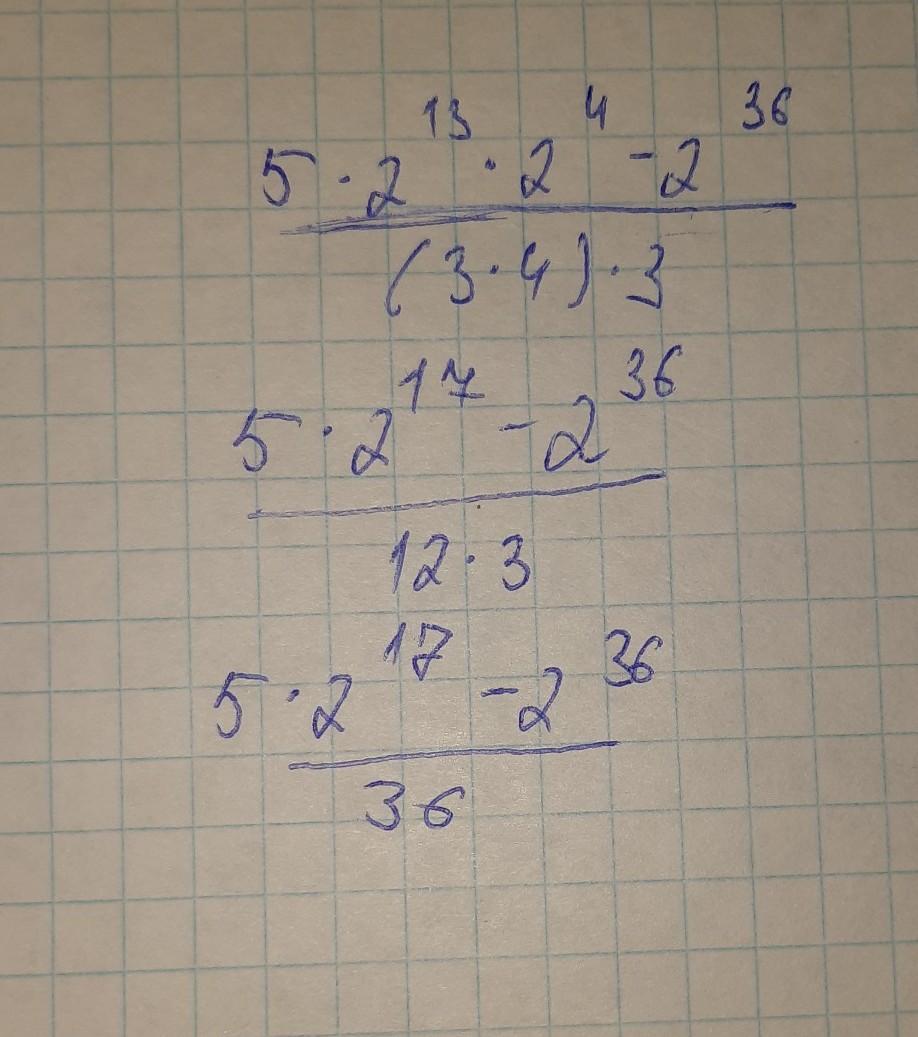 5 · 2¹³ · 2⁴ - 2³⁶
(3 · 4) · 3
5 · 2¹⁷ - 2³⁶
12 · 3
5 · 2¹⁷ - 2³⁶
36